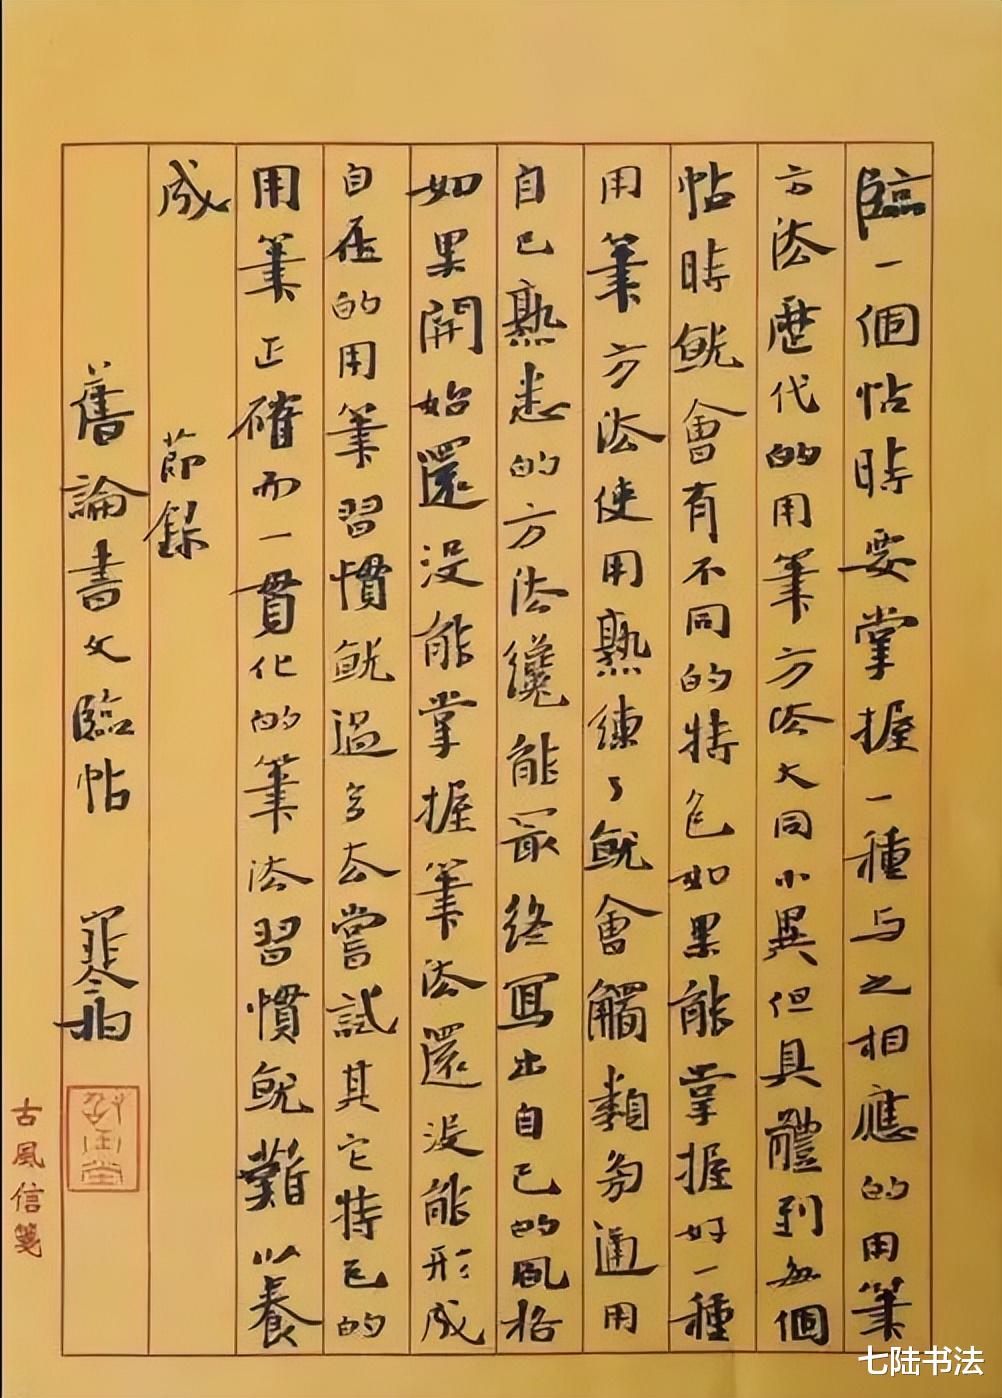 臨一個帖時要掌握一種与之相應的用筆
方法歷代的用筆方法大同小異但具體到每個
帖時就會有不同的特色如果能掌握好一種
用筆方法使用熟練了就會觸類旁通用
自己熟悉的方法纔能最終寫出自己的風格
如果開始還没能掌握筆法還没能形成
自在的用筆習慣就過多去嘗試其它特色的
用筆正確而一貫化的筆法習慣就難以養
成　節錄
舊論書文臨帖
古風信箋
七陆书法